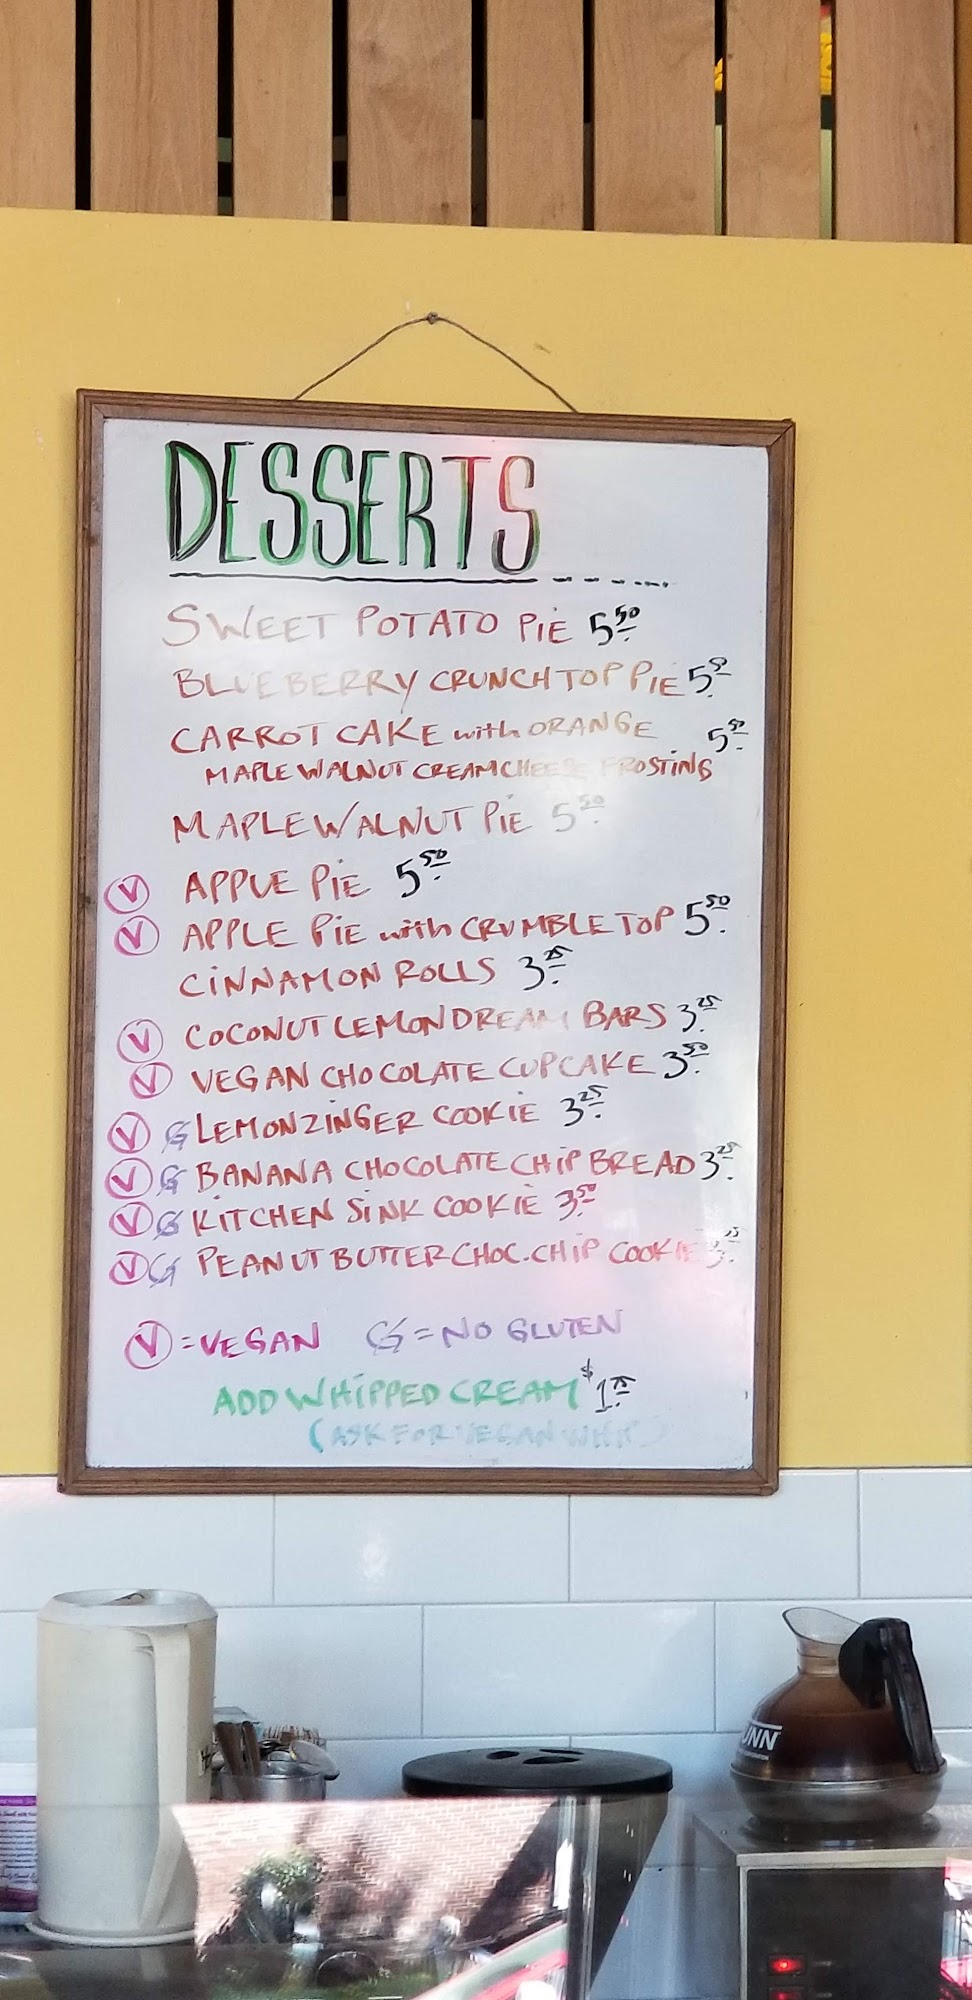 DESSERTS
SWEET POTATO PIE 5.50
BLUEBERRY CRUNCH TOP PIE 5.50
CARROT CAKE with ORANGE 5.50
MAPLE WALNUT CREAM CHEESE FROSTING
MAPLE WALNUT PIE 5.50
V APPLE PIE 5.50
V APPLE PIE with CRUMBLE TOP 5.50
CINNAMON ROLLS 3.25
V COCONUT LEMON DREAM BARS 3.25
V VEGAN CHOCOLATE CUPCAKE 3.50
V G LEMONZINGER COOKIE 3.25
V G BANANA CHOCOLATE CHIP BREAD 3.25
V G KITCHEN SINK COOKIE 3.50
V G PEANUT BUTTER CHOC. CHIP COOKIE 3.25
V = VEGAN G = NO GLUTEN
ADD WHIPPED CREAM $1.75
(ASK FOR VEGAN WHIP)
UNN